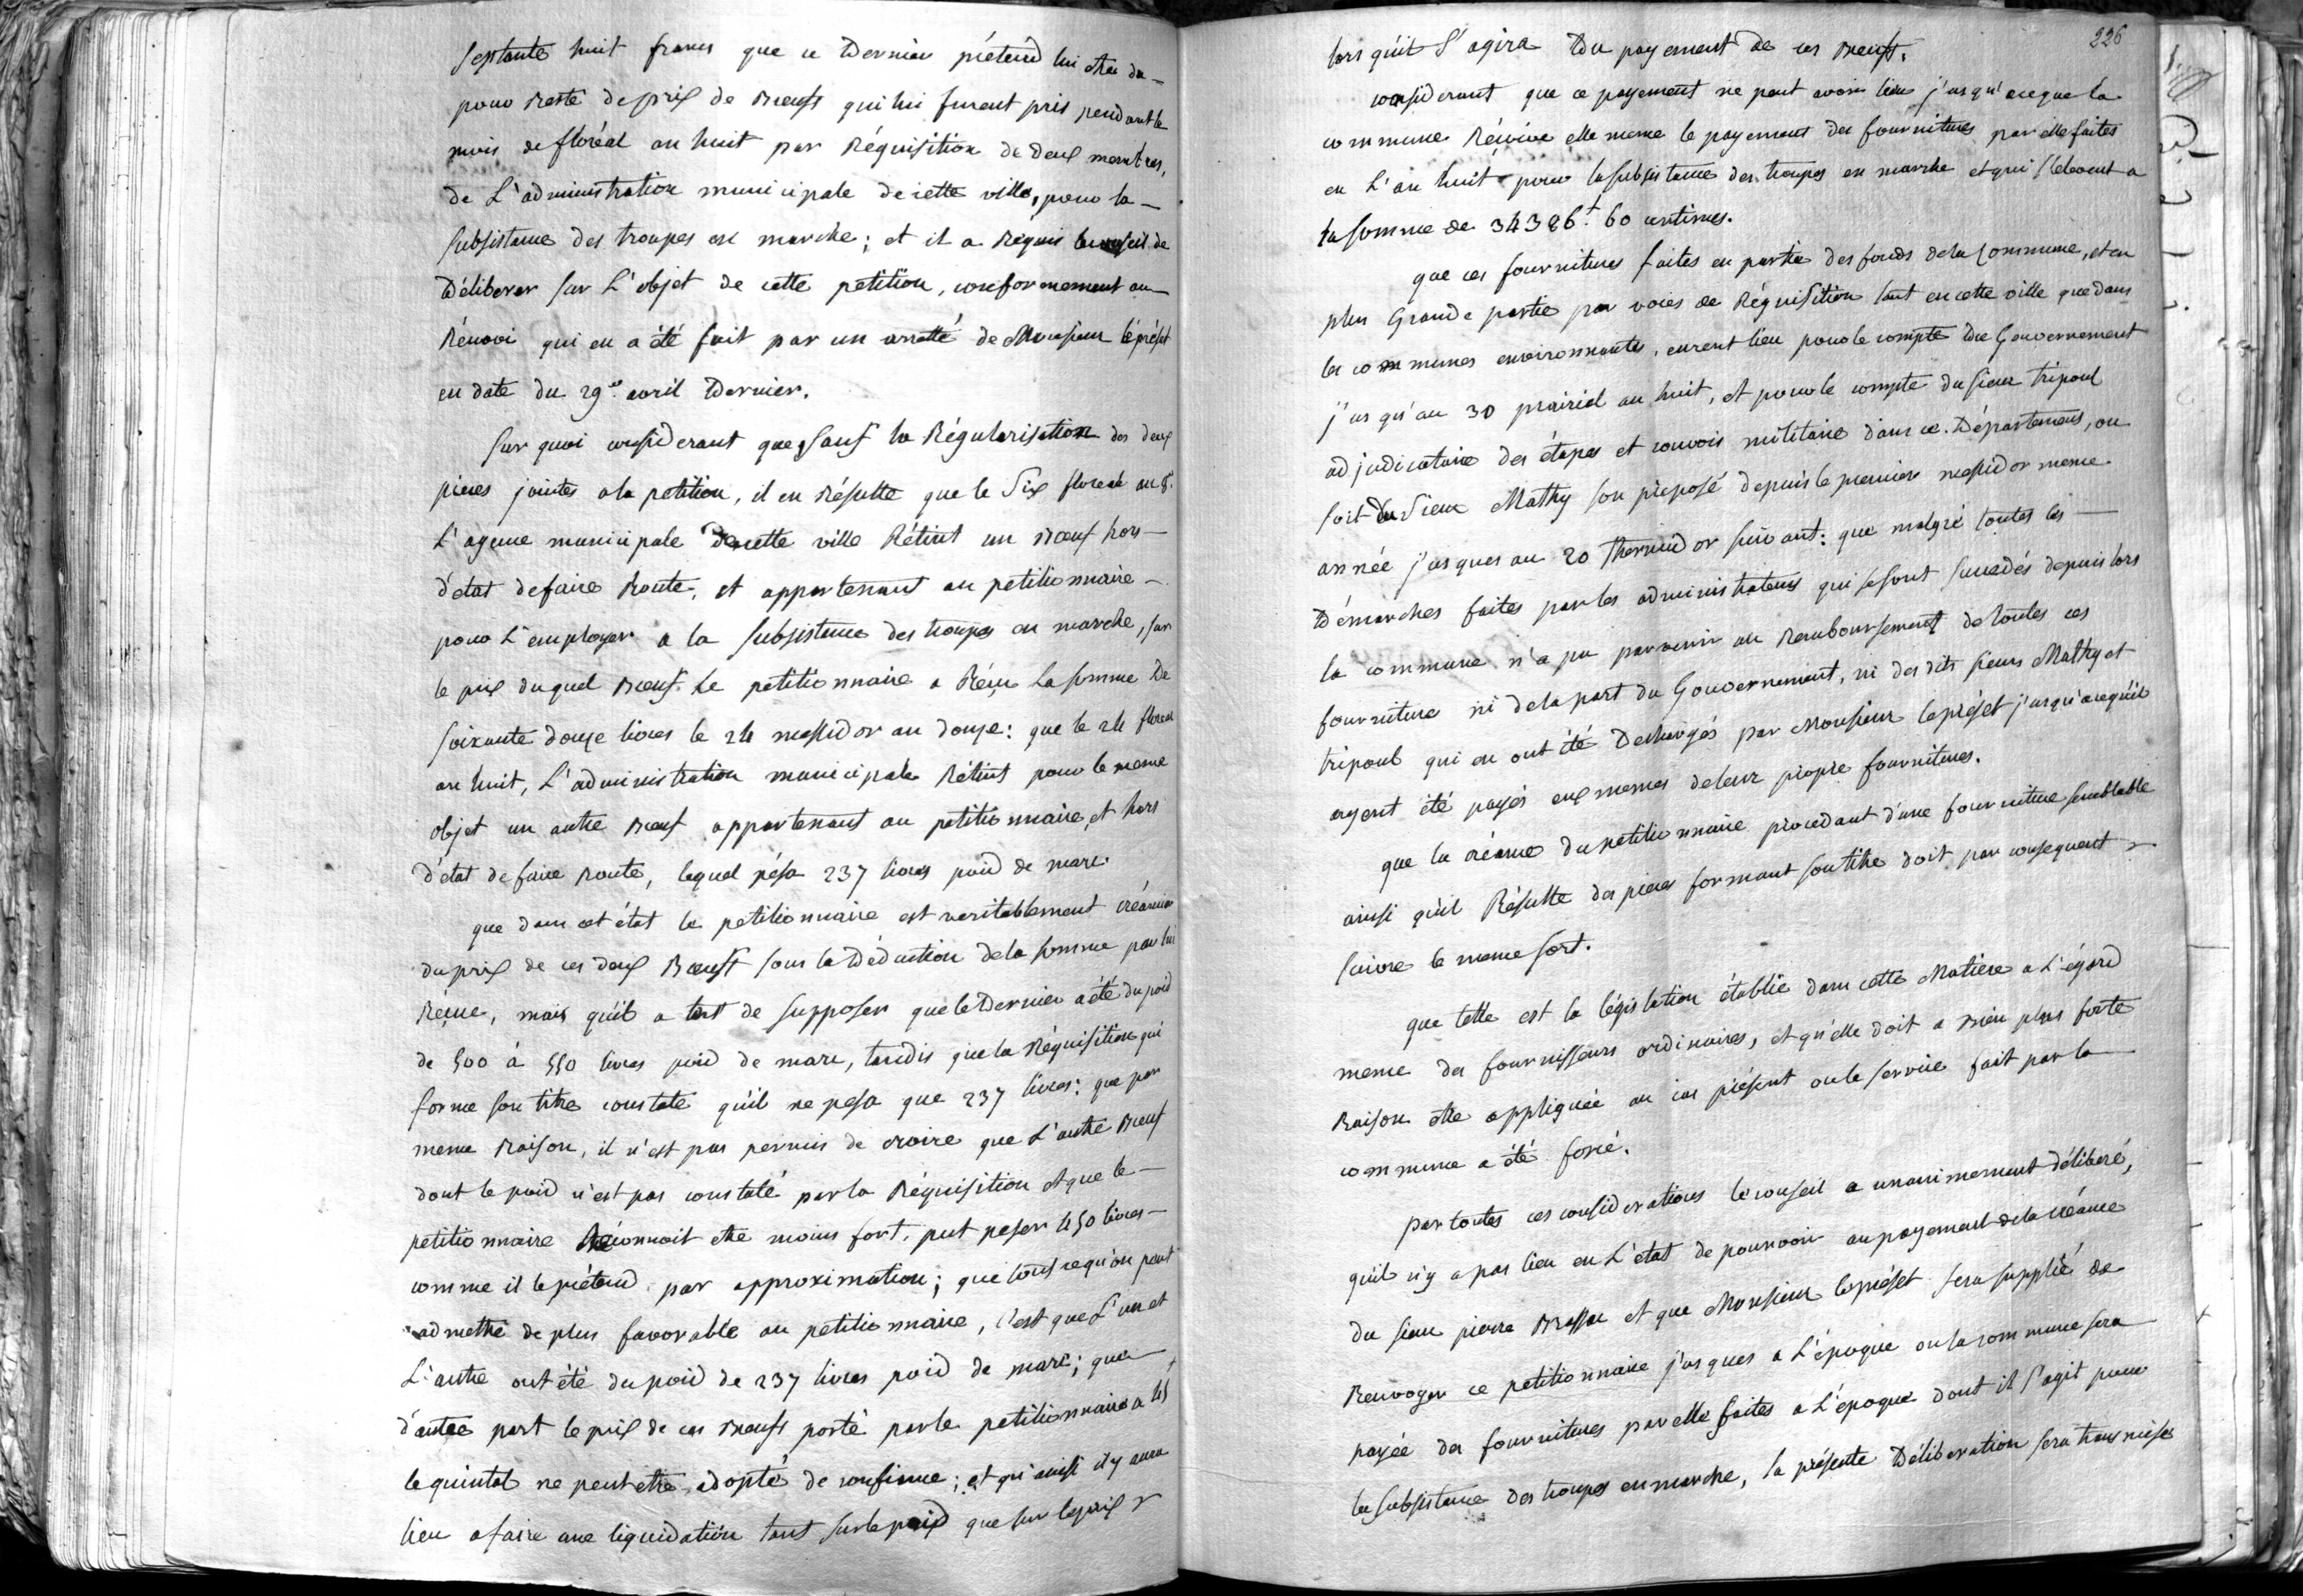 septante huit francs que ce Dernier prétend lui etre du -
pour Reste de prix de Bœufs qui lui furent pris pendant le
mois de floréal an huit par Réquisition de deux membres,
de L'administration municipale de cette ville, pour la -
subsistance des troupes en marche ; et il a Requis le conseil de
Déliberer sur L'objet de cette petition, conformement au
Rénvoi qui en a été fait par un arretté de Monsieur le préfet
en date du 29e. avril Dernier.
Sur quoi considerant que, sauf la Régularisation des deux
pieces jointes a la petition, il en Résulte que le Six floreal an 8e.
L'agence municipale de cette ville Rétint un Bœuf hors -
d'état de faire Route, et appartenant au petitionnaire -
pour L'employer a la subsistance des troupes en marche, sur
le prix duquel Bœuf le petitionnaire a Réçu la somme De
soixante douze livres le 24 messidor an douze : que le 24 floreal
an huit, L'administration municipale Rétint pour le meme
objet un autre Bœuf appartenant au petitionnaire, et hors
d'état de faire Route, lequel pésa 237 livres poid de marc.
que dans cet état le petitionnaire est veritablement créancier
du prix de ces deux Bœufs sous la Déduction de la somme par lui
Réçue, mais qu'il a tort de supposer que le Dernier a été du poid
de 500 à 550 livres poid de marc, tandis que la Réquisition qui
forme son titre constate qu'il ne pesa que 237 livres : que par
meme Raison, il n'est pas permis de croire que L'autre Bœuf
dont le poid n'est pas constaté par la Réquisition et que le -
petitionnaire Réconnoit etre moins fort, put peser 450 livres -
comme il le prétend par approximation ; que tout ce qu'on peut
admettre de plus favorable au petitionnaire, c'est que L'un et
L'autre ont été du poid de 237 livres poid de marc ; que
d'autre part le prix de ces Bœufs porté par le petitionnaire a
le quintal ne peut etre adopté de confiance ; et qu'ainsi il y aura
lieu a faire une liquidation tant sur le poid que sur le prix
226
lors qu'il s'agira Du payement de ces Bœufs.
considerant que ce payement ne peut avoir lieu j'usqu'aceque la
commune Réçoive elle meme le payement des fournitures par elle faites
en L'an huit pour la subsistance des troupes en marche et qui s'elevent a
la somme de 34386f. 60 centimes.
que ces fournitures faites en partie des fonds de la Commune, et en
plus Grande partie par voies de Réquisition tant en cette ville que dans
les communes environnantes, eurent lieu pour le compte Du Gouvernement
j'usqu'au 30 prairial an huit, et pour le compte du sieur tripoul
adjudicataire des étapes et convois militaire dans ce Département, ou
soit du Sieur Mathy son préposé depuis le premier messidor meme
année j'usques au 20 thermidor suivant : que malgré toutes les
Démarches faites par les administrateurs qui se sont succedés depuis lors
la commune n'a pu parvenir au Remboursement de toutes ces
fourniture ni de la part du Gouvernement, ni des dits sieurs Mathy et
tripoul qui en ont été Dechargés par Monsieur le préfet j'usqu'acequ'il
ayent été payés eux memes de leur propre fournitures.
que la créance du petitionnaire procedant d'une fourniture semblable
ainsi qu'il Résulte des pieces formant son titre doit par consequent
suivre le meme sort.
que telle est la législation établie dans cette Matiere a L'égard
meme des fournisseurs ordinaires, et qu'elle doit a Bien plus forte
Raison etre appliquée au cas présent ou le service fait par la
commune a été forcé.
par toutes ces considerations le conseil a unanimement déliberé,
qu'il n'y a pas lieu en L'état de pourvoir au payement de la créance
du sieur pierre et que Monsieur le préfet sera supplié de
Renvoyer ce petitionnaire j'usques a L'époque ou la commune sera
payée des fournitures par elle faites a L'époque dont il s'agit pour
la subsistance des troupes en marche, la présente Déliberation sera transmise